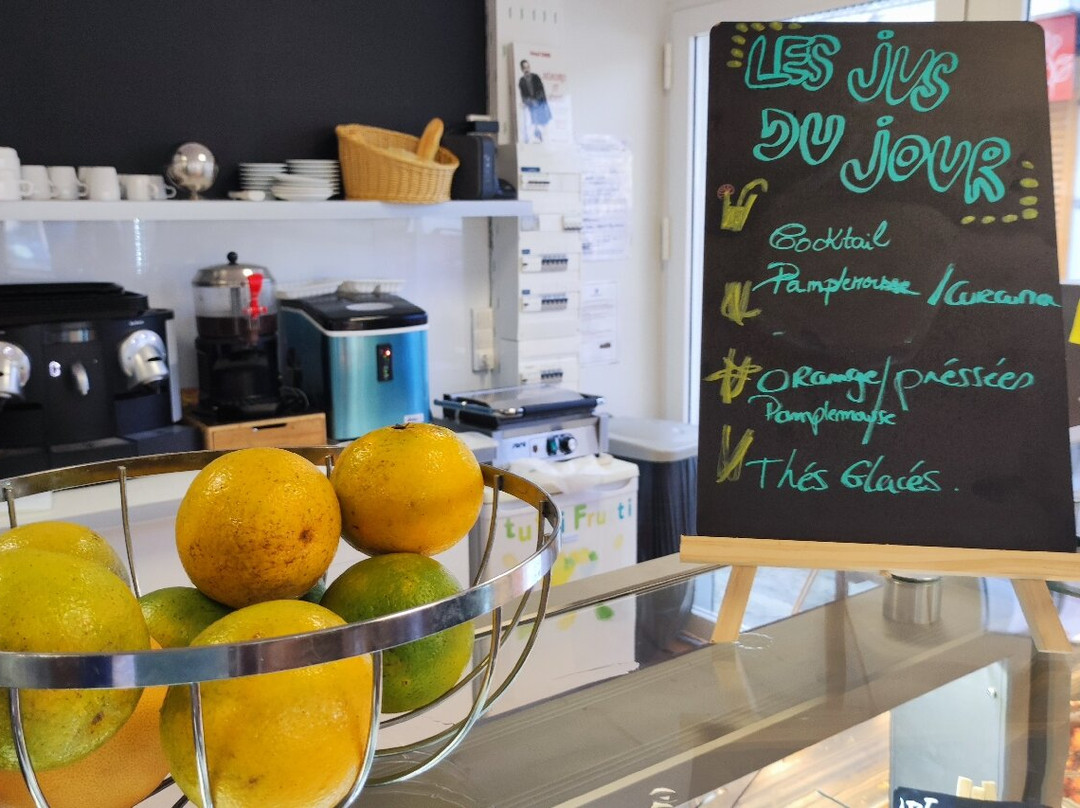 LES JUS
DU JOUR
Cocktail
Pamplemousse / Curcuma
ORange / préssées
Pamplemousse
Thés Glacés.
tutti Frutti